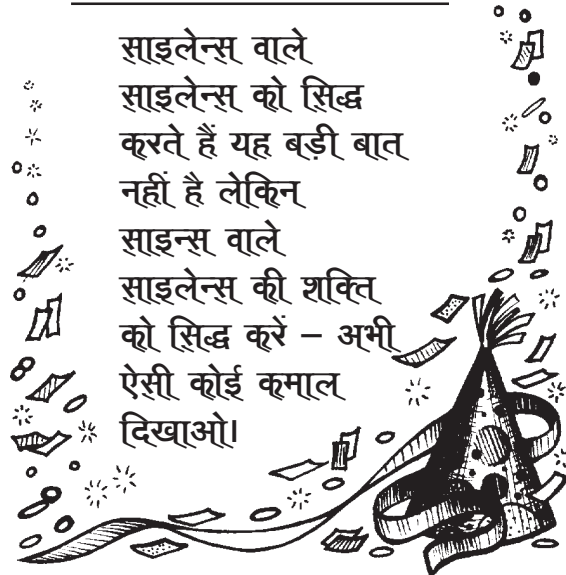 साइलेन्स वाले
साइलेन्स को सिद्ध
करते हैं यह बड़ी बात
नहीं है लेकिन
साइन्स वाले
साइलेन्स की शक्ति
को सिद्ध करें – अभी
ऐसी कोई कमाल
दिखाओ।